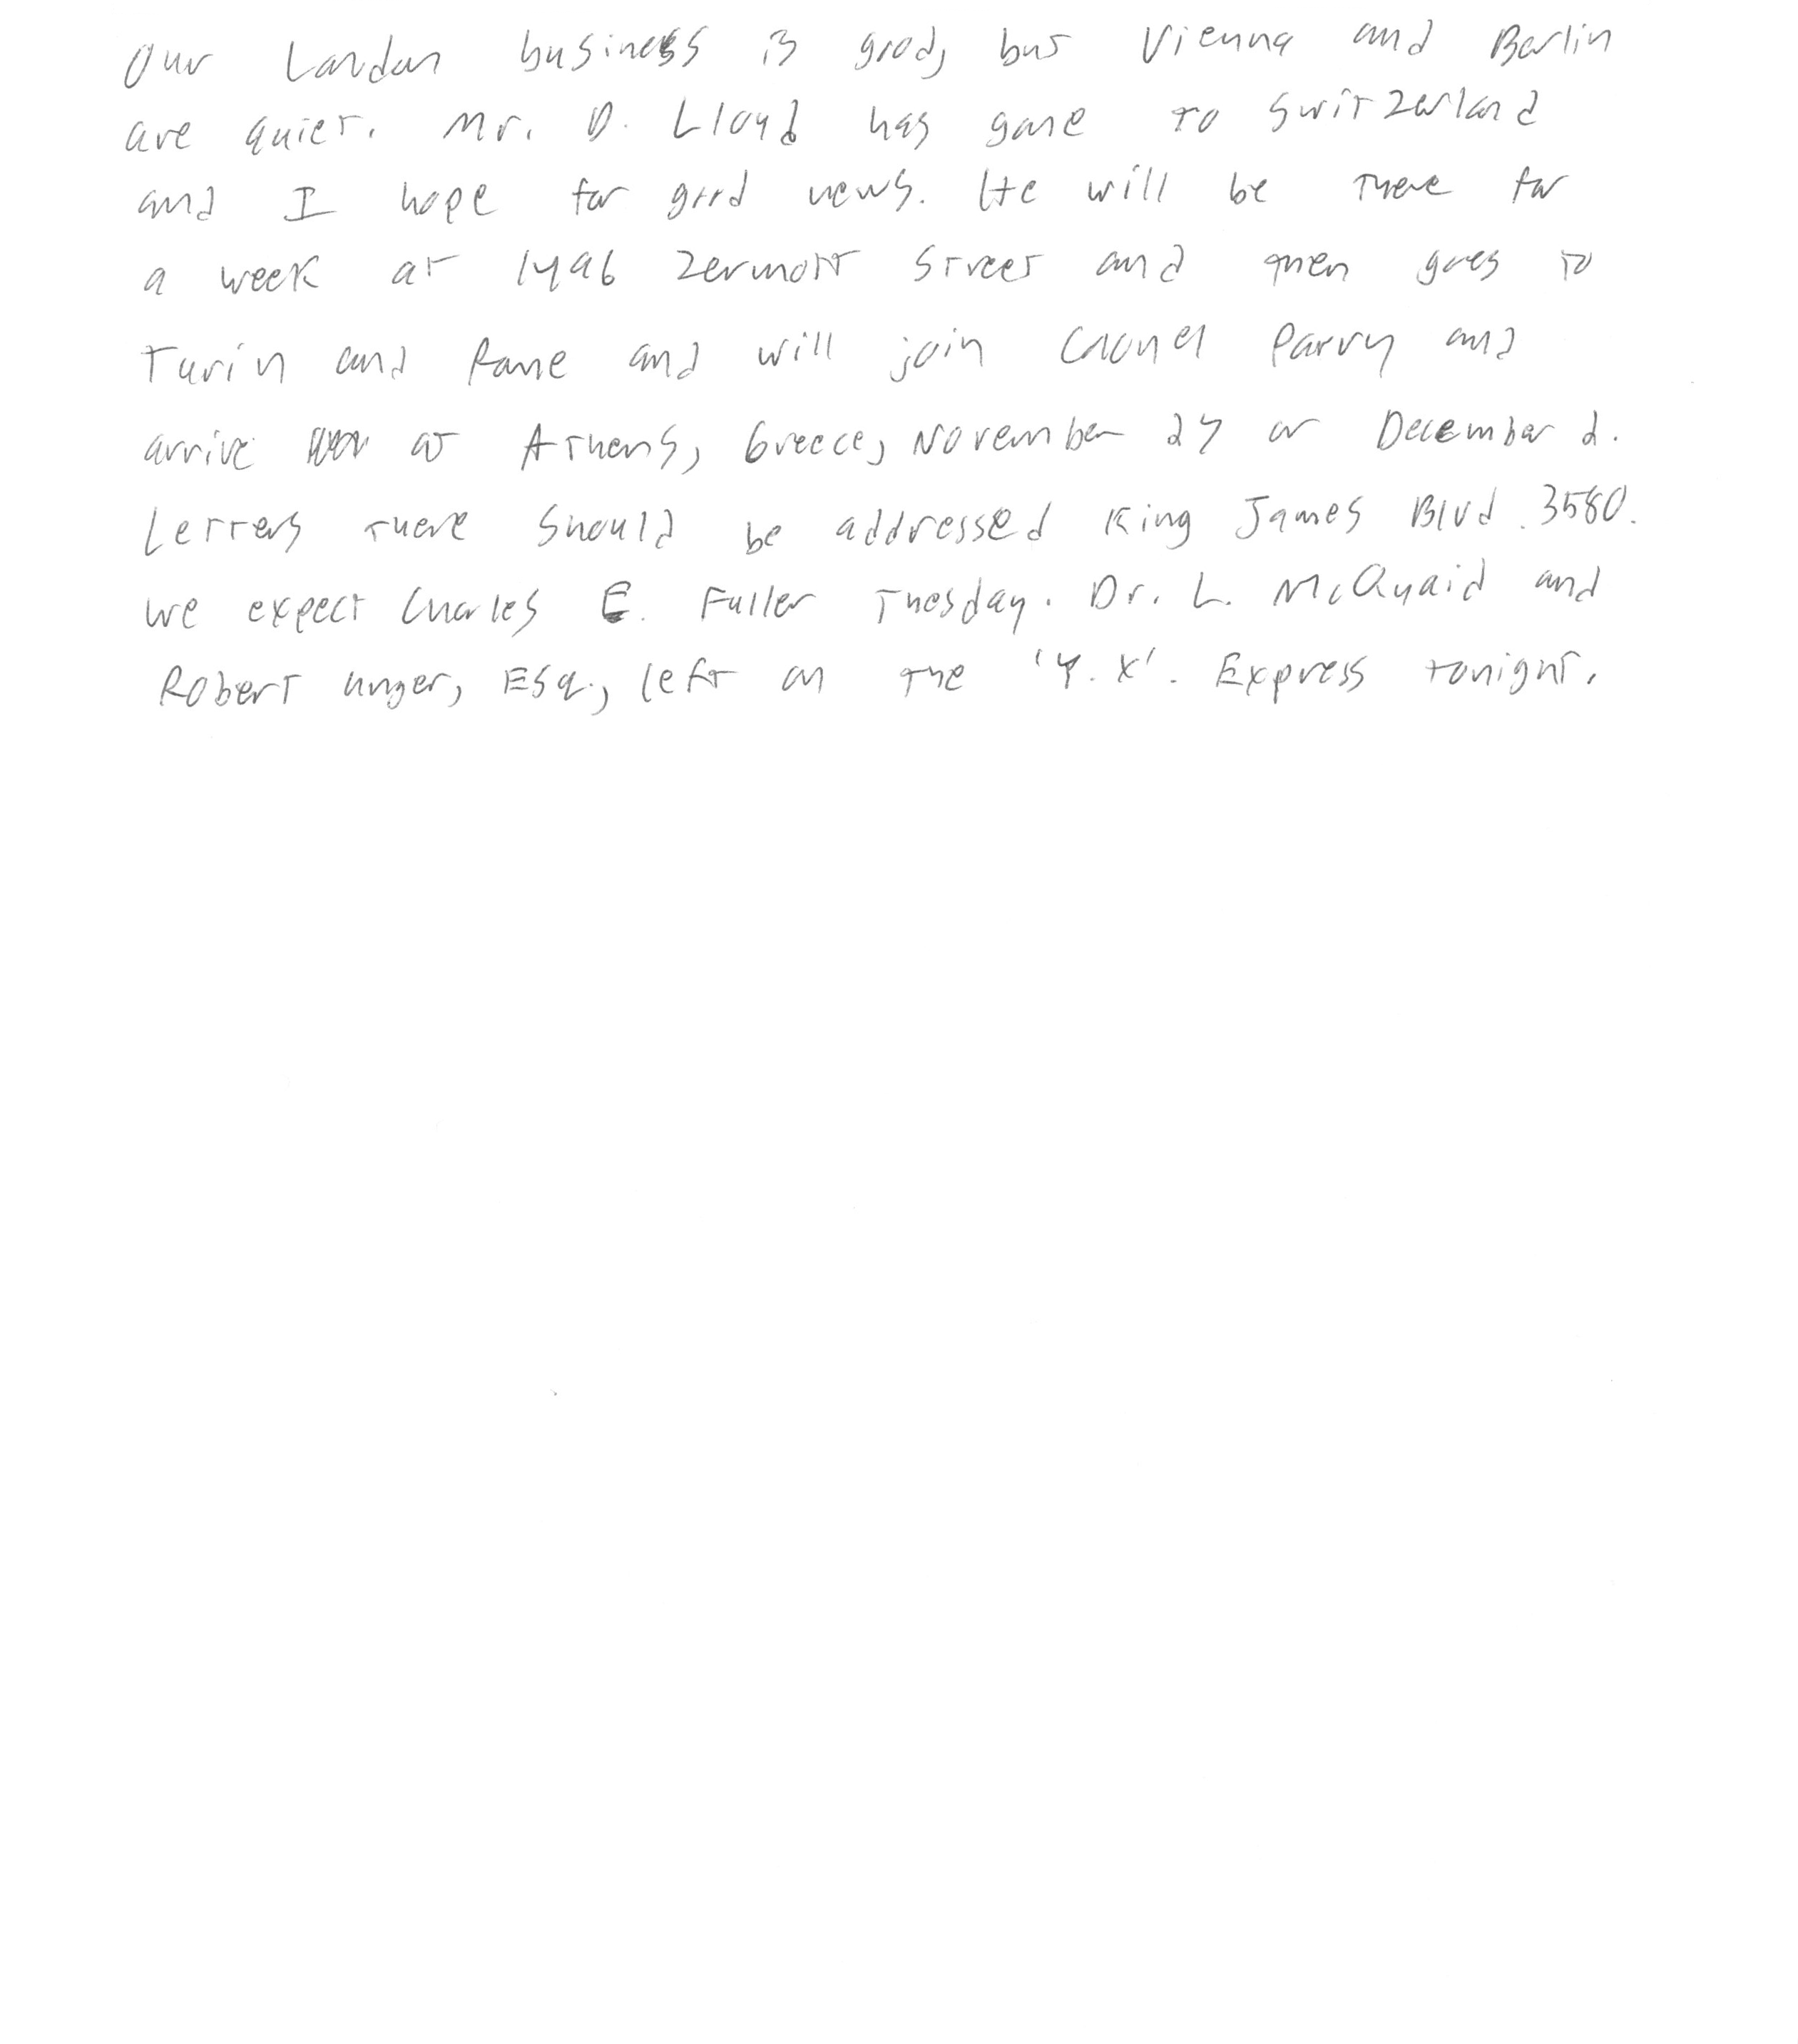 Our London business is good, but Vienna and Berlin
are quiet. Mr. D. Lloyd has gone to Switzerland
and I hope for good news. He will be there for
a week at 1496 Zermott Street and then goes to
Turin and Rome and will join Colonel Parry and
arrive at Athens, Greece, November 27 or December 2.
Letters there should be addressed King James Blvd. 3580.
We expect Charles E. Fuller Tuesday. Dr. L. McQuaid and
Robert Unger, Esq., left on the 'Y.X'. Express tonight.